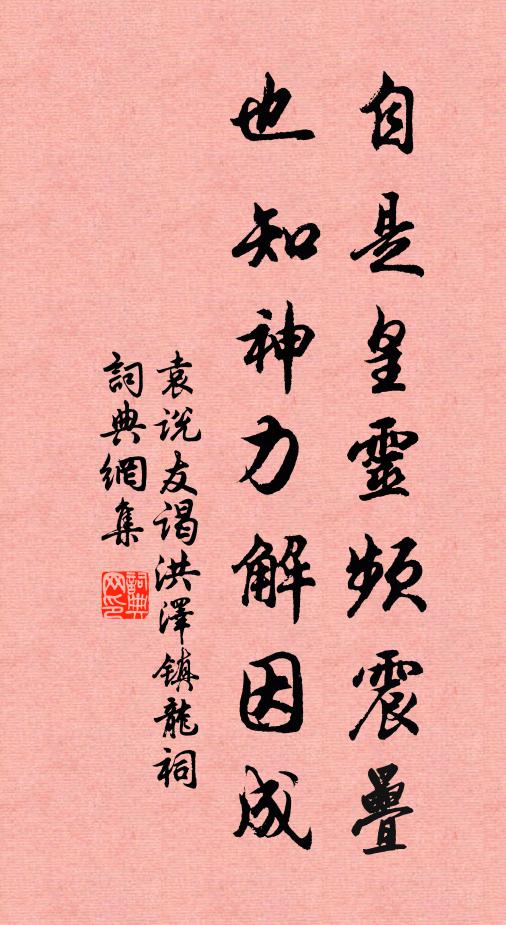 自是皇靈頻震疊
也知神力解因成
袁説友謁洪澤鎮龍祠
詞典網集
詞典网印